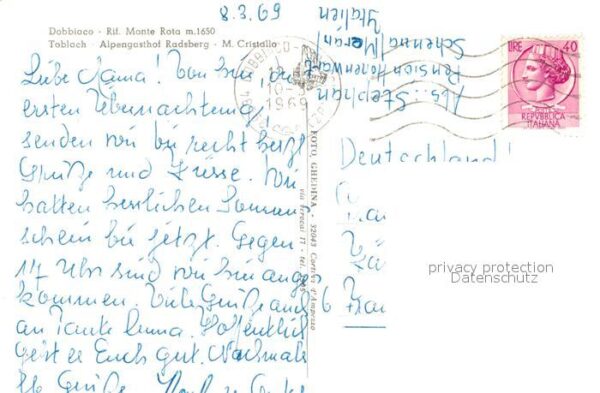 8.3.69
Dobbiaco - Rif. Monte Rota m.1650
Toblach - Alpengasthof Radsberg - M. Cristallo
Liebe Mama! Von hier, der
ersten Übernachtung,
senden wir Dir recht herzl
Grüße und Küsse. Wir
hatten herrlichen Sonnen
schein bis jetzt. Gegen
17 Uhr sind wir hier ange
kommen. Viele Grüße auch
an Tante Anna. Hoffentlich
geht es Euch gut. Nochmals
Grüße
Abs.: Stephan
Pension Hohenwart
Schenna/Meran
Italien
10-3
1969
LIRE 40
REPVBBLICA
ITALIANA
FOTO GHEDINA - 32043 Cortina d'Ampezzo
Deutschland!
Frau
6 Fran
privacy protection
Datenschutz